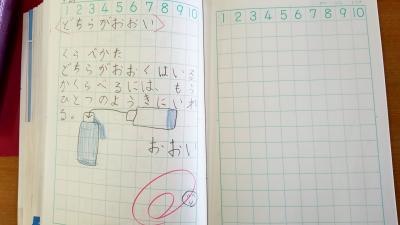 1 2 3 4 5 6 7 8 9 10
どちらがおおい
くらべかた
どちらがおおくはいる
かくらべるには、もう
ひとつのようきにいれ
る。
おおい
1 2 3 4 5 6 7 8 9 10